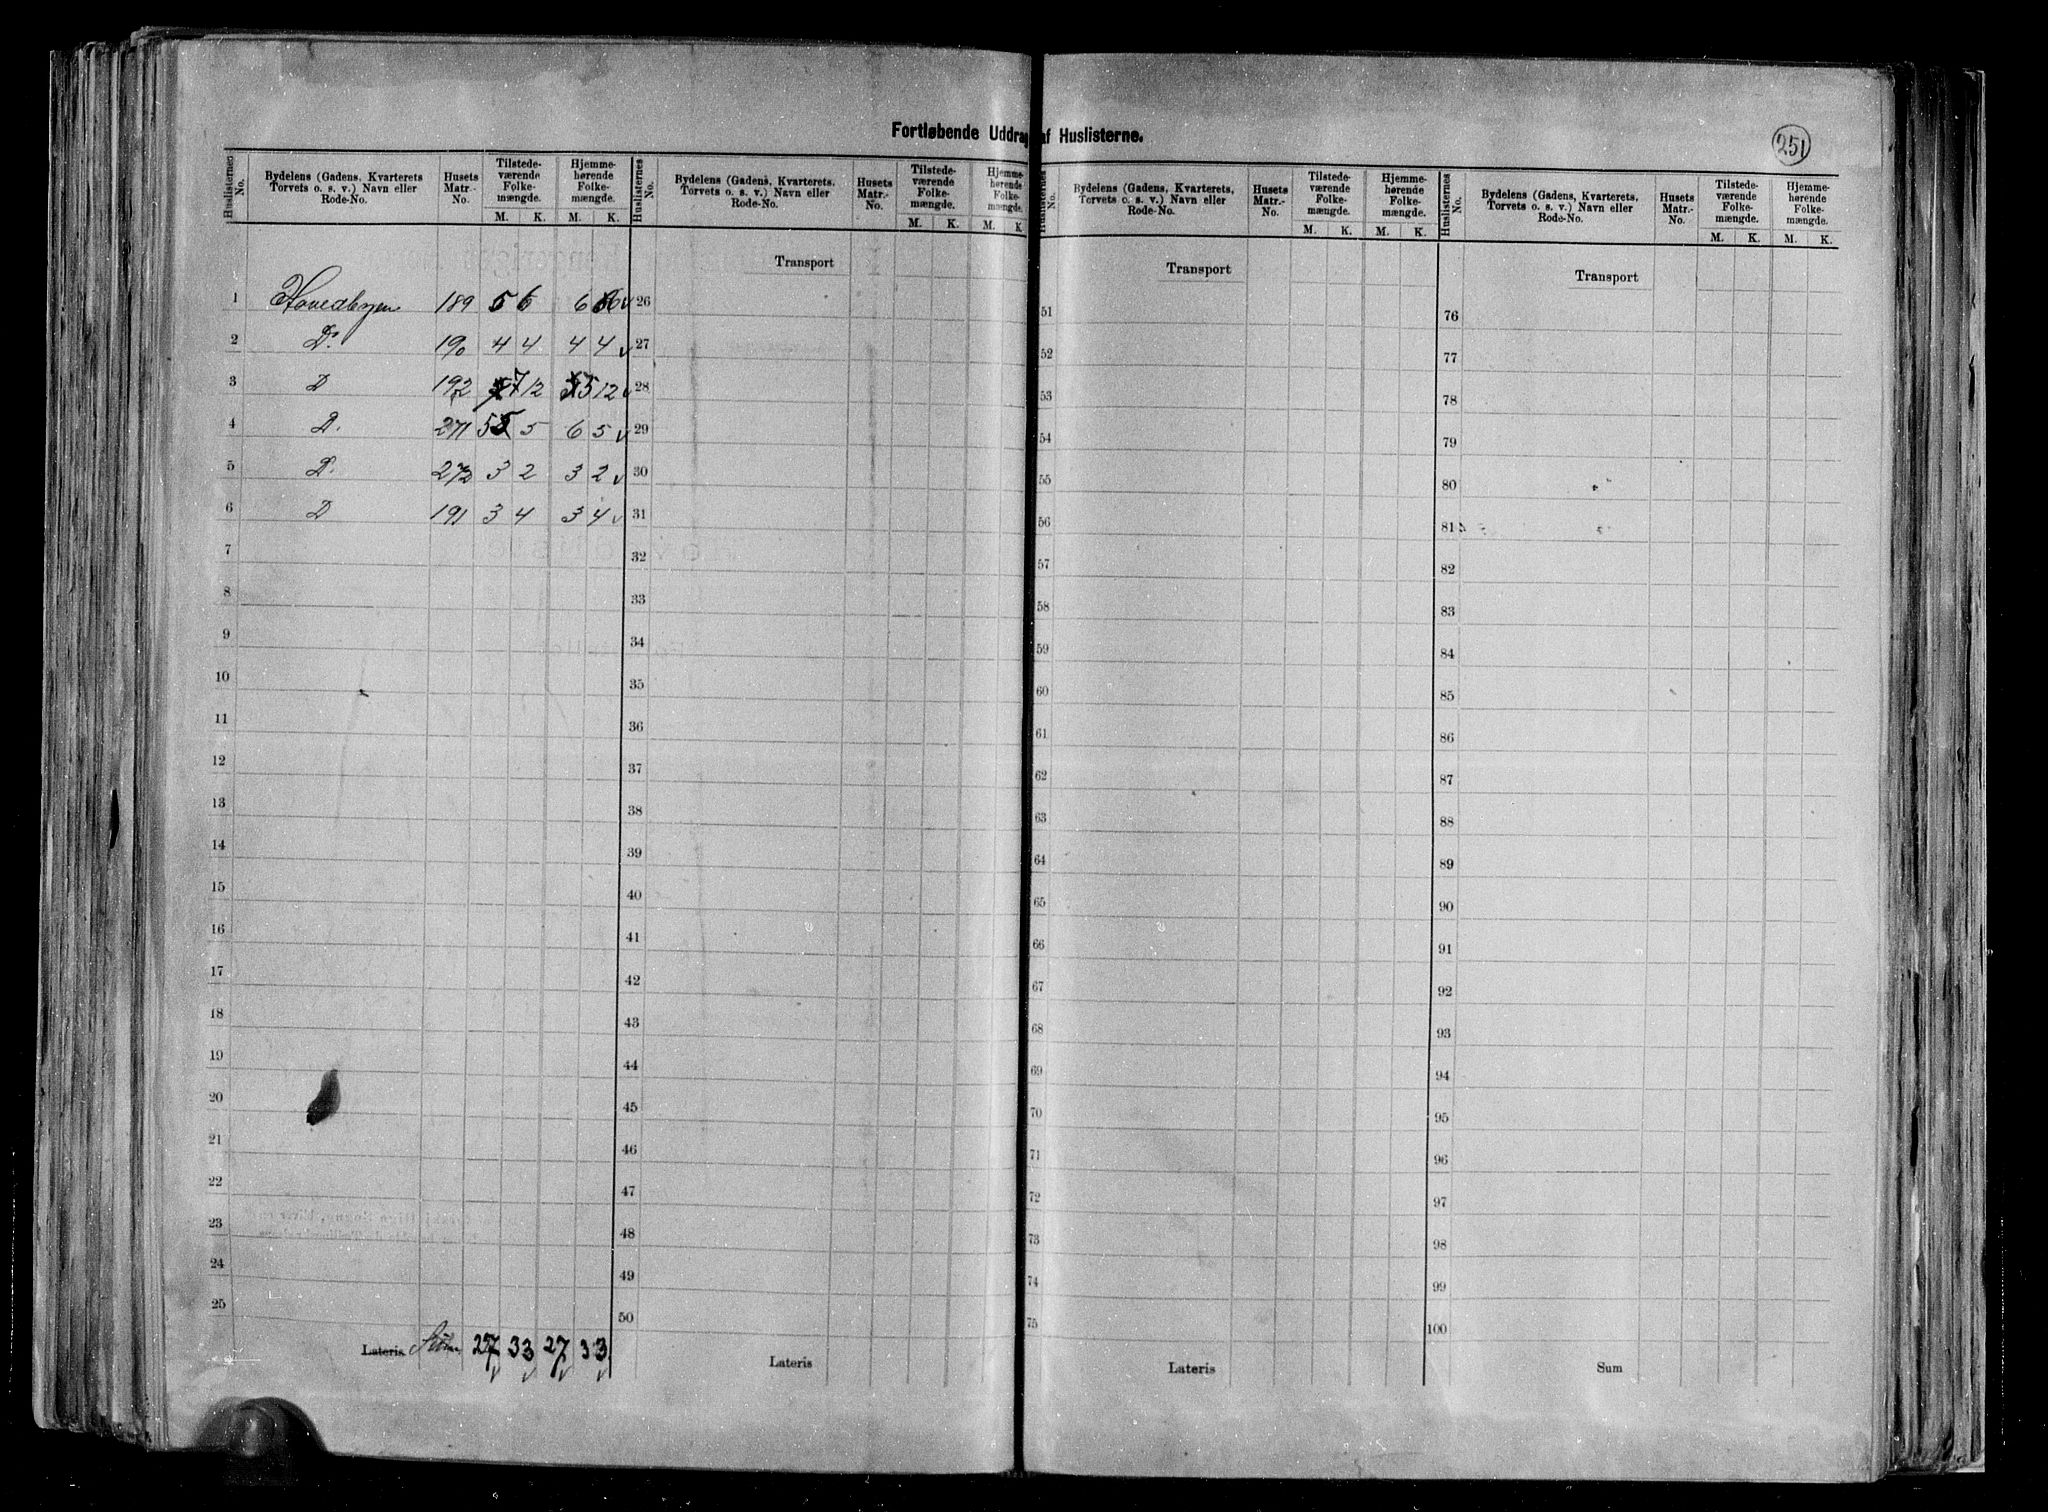 Fortløbende Uddrag af Huslisterne.
251
Huslisternes No. | Bydelens (Gadens, Kvarterets Torvets o. s. v.) Navn eller Rode-No. | Husets Matr.-No. | Tilstedeværende Folkemængde. M. K. | Hjemmehørende Folkemængde. M. K.
1 Hovedbyen 189 5 6 6 6 v
2 Do. 190 4 4 4 4 v
3 D 192 7 12 5 12 v
4 D. 271 5 5 6 5 v
5 D. 272 3 2 3 2 v
6 D 191 3 4 3 4 v
7
8
9
10
11
12
13
14
15
16
17
18
19
20
21
22
23
24
25
Lateris 27 33 27 33
Huslisternes No. | Bydelens (Gadens, Kvarterets, Torvets o. s. v.) Navn eller Rode-No. | Husets Matr.-No. | Tilstedeværende Folkemængde. M. K. | Hjemmehørende Folkemængde. M. K.
Transport
26
27
28
29
30
31
32
33
34
35
36
37
38
39
40
41
42
43
44
45
46
47
48
49
50
Lateris
Huslisternes No. | Bydelens (Gadens, Kvarterets, Torvets o. s. v.) Navn eller Rode-No. | Husets Matr.-No. | Tilstedeværende Folkemængde. M. K. | Hjemmehørende Folkemængde. M. K.
Transport
51
52
53
54
55
56
57
58
59
60
61
62
63
64
65
66
67
68
69
70
71
72
73
74
75
Lateris
Huslisternes No. | Bydelens (Gadens, Kvarterets, Torvets o. s. v.) Navn eller Rode-No. | Husets Matr.-No. | Tilstedeværende Folkemængde. M. K. | Hjemmehørende Folkemængde. M. K.
Transport
76
77
78
79
80
81
82
83
84
85
86
87
88
89
90
91
92
93
94
95
96
97
98
99
100
Sum